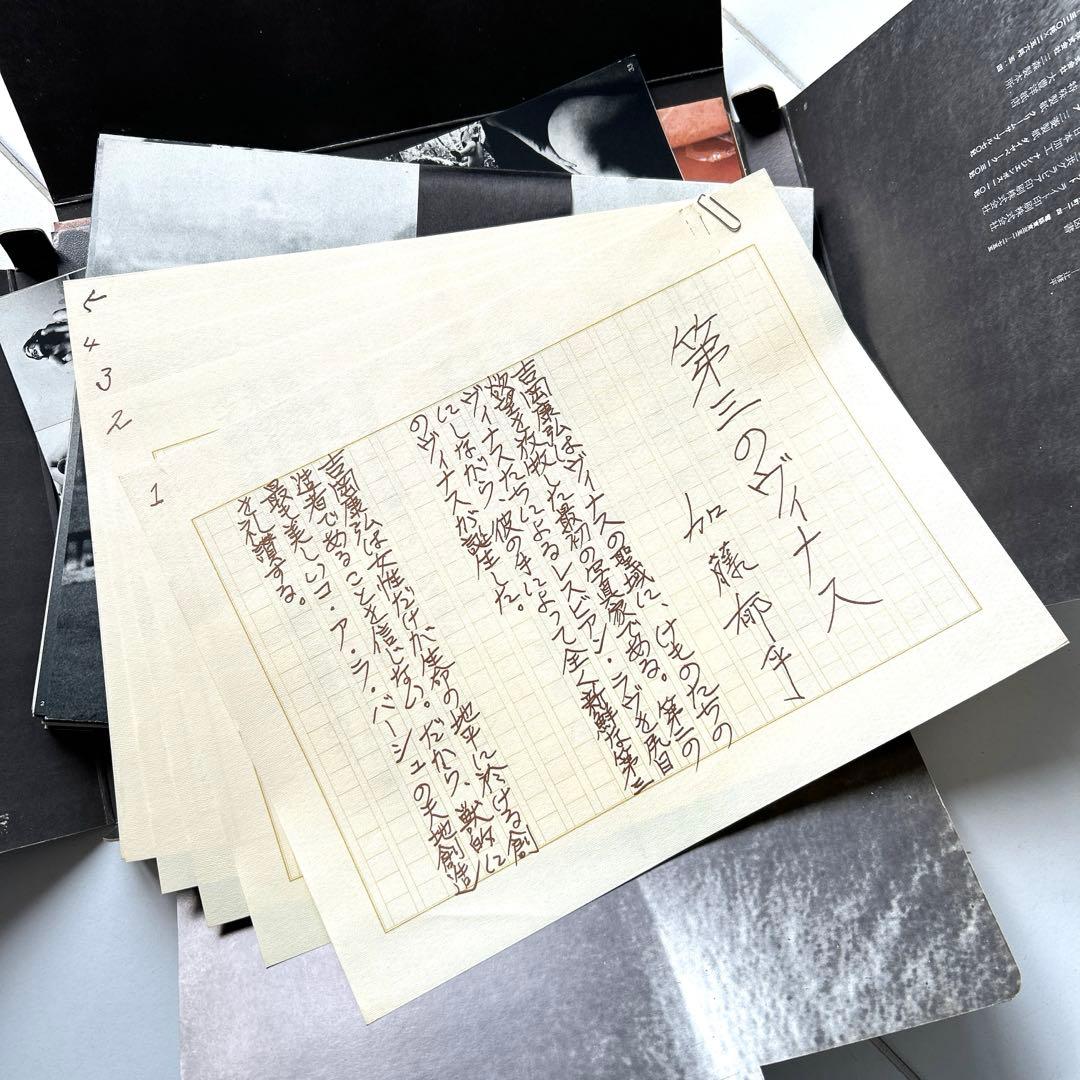 第三のヴィナス
加藤郁乎
吉岡康弘はヴィナスの聖域に、けものたちの
欲望を放牧した最初の写真家である。第二の
ヴィナスたちによるレスビアン・ラヴを尻目
にしながら、彼の手によって全く新鮮な第三
のヴィナスが誕生した。
吉岡康弘は女性だけが生命の地平に於ける創
造者であることを信じない。だから、獣的に
最も美しいコ・ア・ラ・ベーシュの天地創造
を礼讃する。
1
2
3
4
5